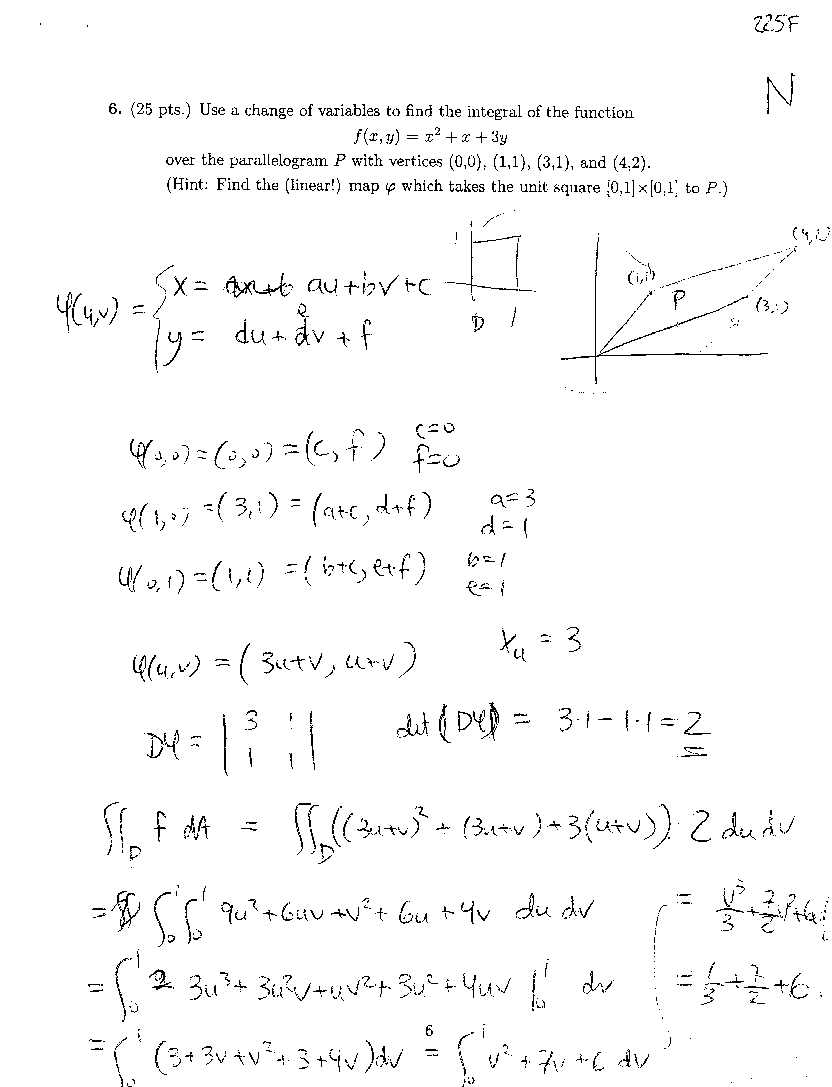 225F
N
6. (25 pts.) Use a change of variables to find the integral of the function
f(x,y) = x² + x + 3y
over the parallelogram P with vertices (0,0), (1,1), (3,1), and (4,2).
(Hint: Find the (linear!) map φ which takes the unit square [0,1]×[0,1] to P.)
φ(u,v) = { x = au+bv+c
y = du+ev+f
1
D 1
(1,1)
P
(3,1)
φ(0,0) = (0,0) = (c,f) c=0
f=0
φ(1,0) = (3,1) = (a+c, d+f) a=3
d=1
φ(0,1) = (1,1) = (b+c, e+f) b=1
e=1
φ(u,v) = (3u+v, u+v) x_u = 3
Dφ = | 3 1 |
| 1 1 |
det(Dφ) = 3·1 − 1·1 = 2
∬_D f dA = ∬_D ((3u+v)² + (3u+v) + 3(u+v))·2 du dv
= ∫₀¹ ∫₀¹ 9u²+6uv+v²+6u+4v du dv
= v³/3 + 7/2 v² + 6
= ∫₀¹ 3u³+3u²v+uv²+3u²+4uv |₀¹ dv
= 1/3 + 7/2 + 6
= ∫₀¹ (3+3v+v²+3+4v)dv = ∫₀¹ v²+7v+6 dv
6